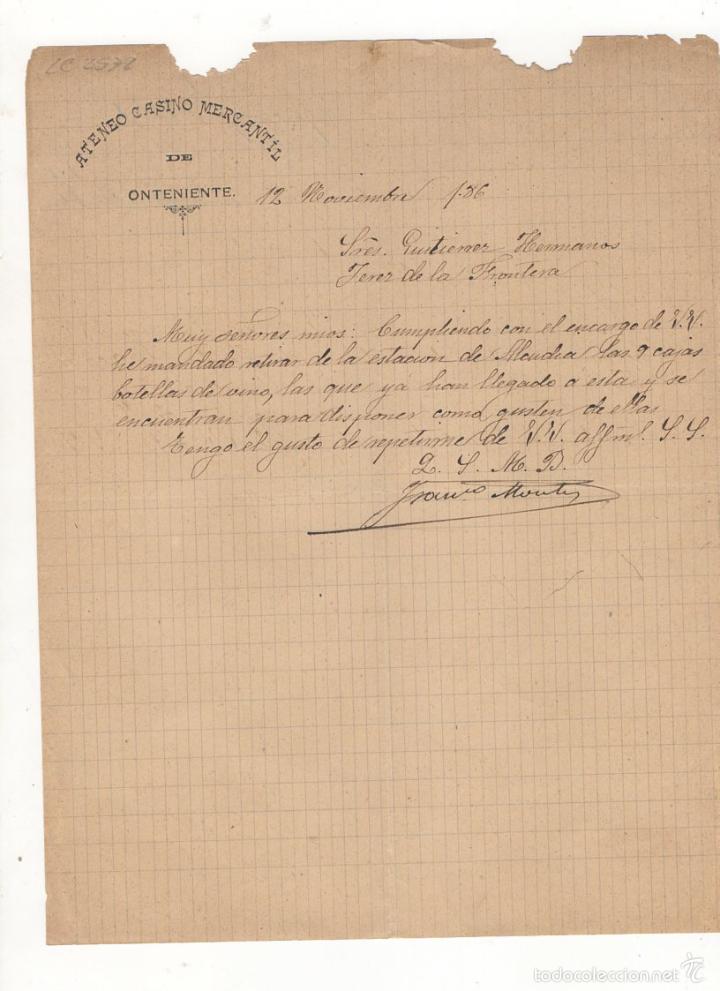 LC 2572
ATENEO CASINO MERCANTIL
DE
ONTENIENTE.
12 Noviembre /86
Sres. Gutierrez Hermanos
Jerez de la Frontera
Muy señores mios: Cumpliendo con el encargo de V.V.
he mandado retirar de la estacion de Mcudia las 9 cajas
botellas de vino, las que ya han llegado a esta y se
encuentran para disponer como gusten de ellas
Tengo el gusto de repetirme de V.V. affmo. S. S.
Q. S. M. B.
Franco Montes
todocoleccion.net